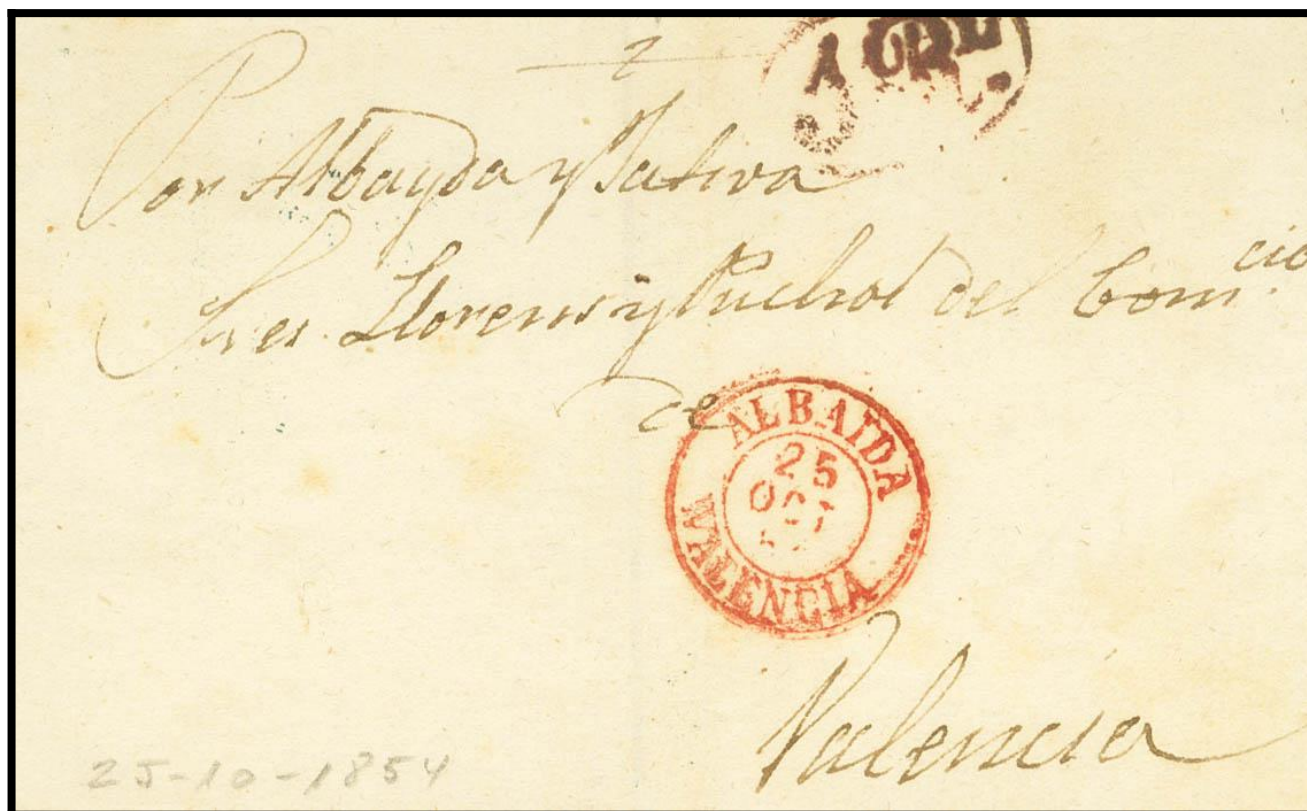 Por Albayda y Jativa
Sres Llorens y Puchol del Com.cio
de
ALBAIDA
25
OCT
VALENCIA
Valencia
25-10-1854